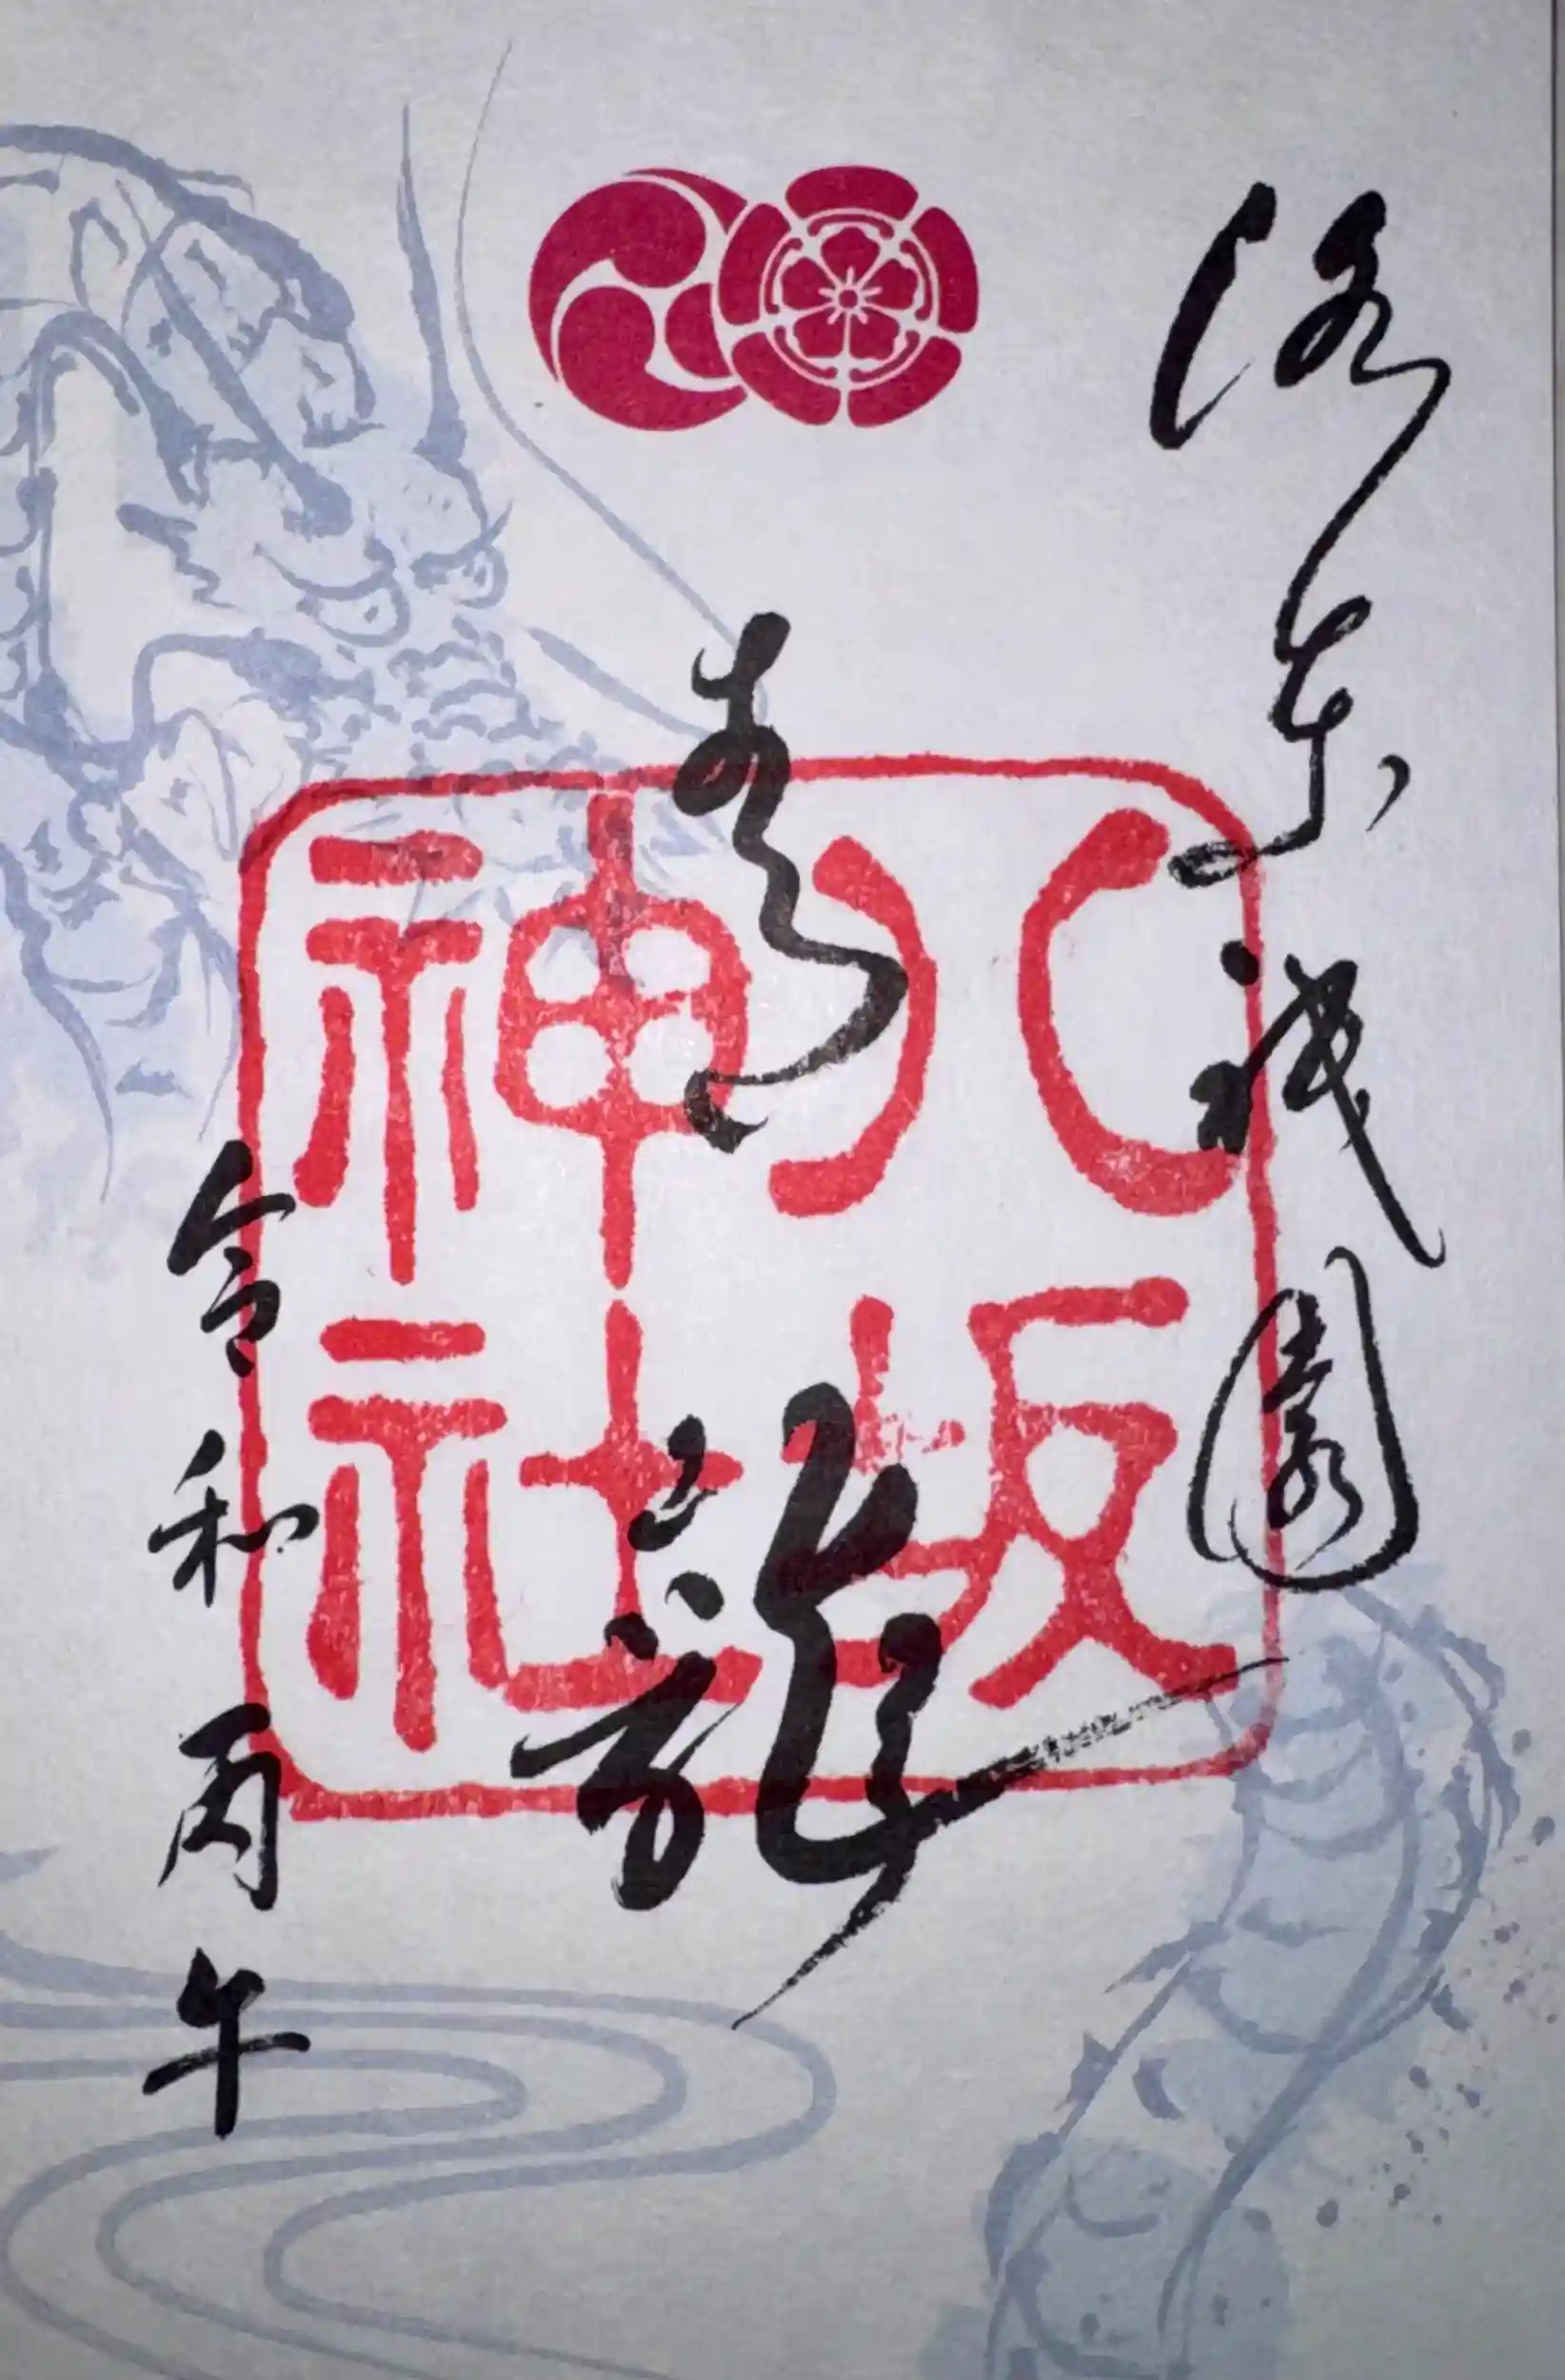 洛東祇園
青龍
八坂神社
令和丙午